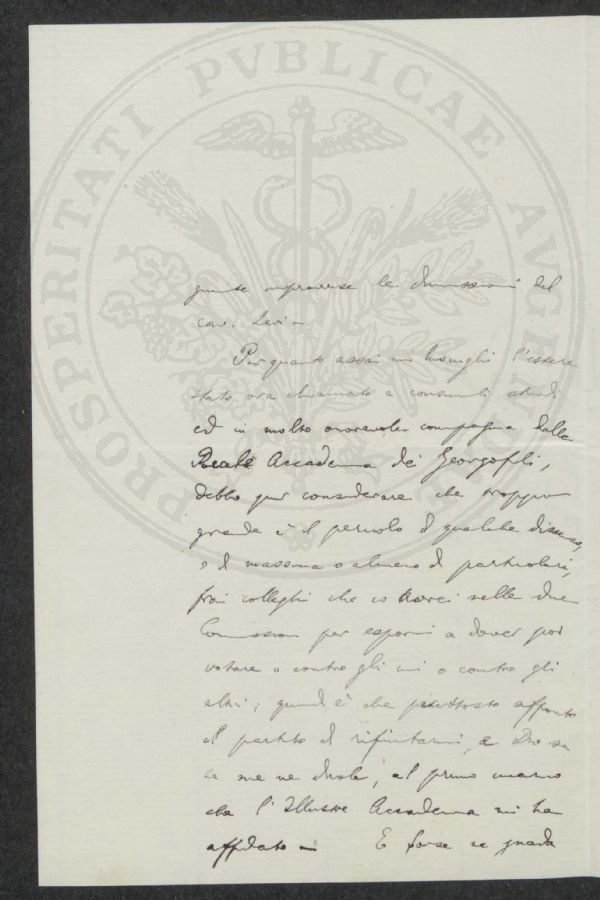 PROSPERITATI PVBLICAE AVGENDAE
le dimissioni del
cav. Levi —
Per quanto assai mi lusinghi l'essere
stato ora chiamato a consimili studi
ed in molto onorevole compagnia dalla
Reale Accademia dei Georgofili,
debbo pur considerare che troppo
grande è il pericolo di qualche dissenso,
o di massima o almeno di particolari,
fra i colleghi che io avrei nelle due
Commissioni per espormi a dover poi
votare o contro gli uni o contro gli
altri; quindi è che piuttosto affronto
il partito di rifiutarmi, e Dio sa
se me ne duole, al primo incarico
che l'Illustre Accademia mi ha
affidato — E forse se